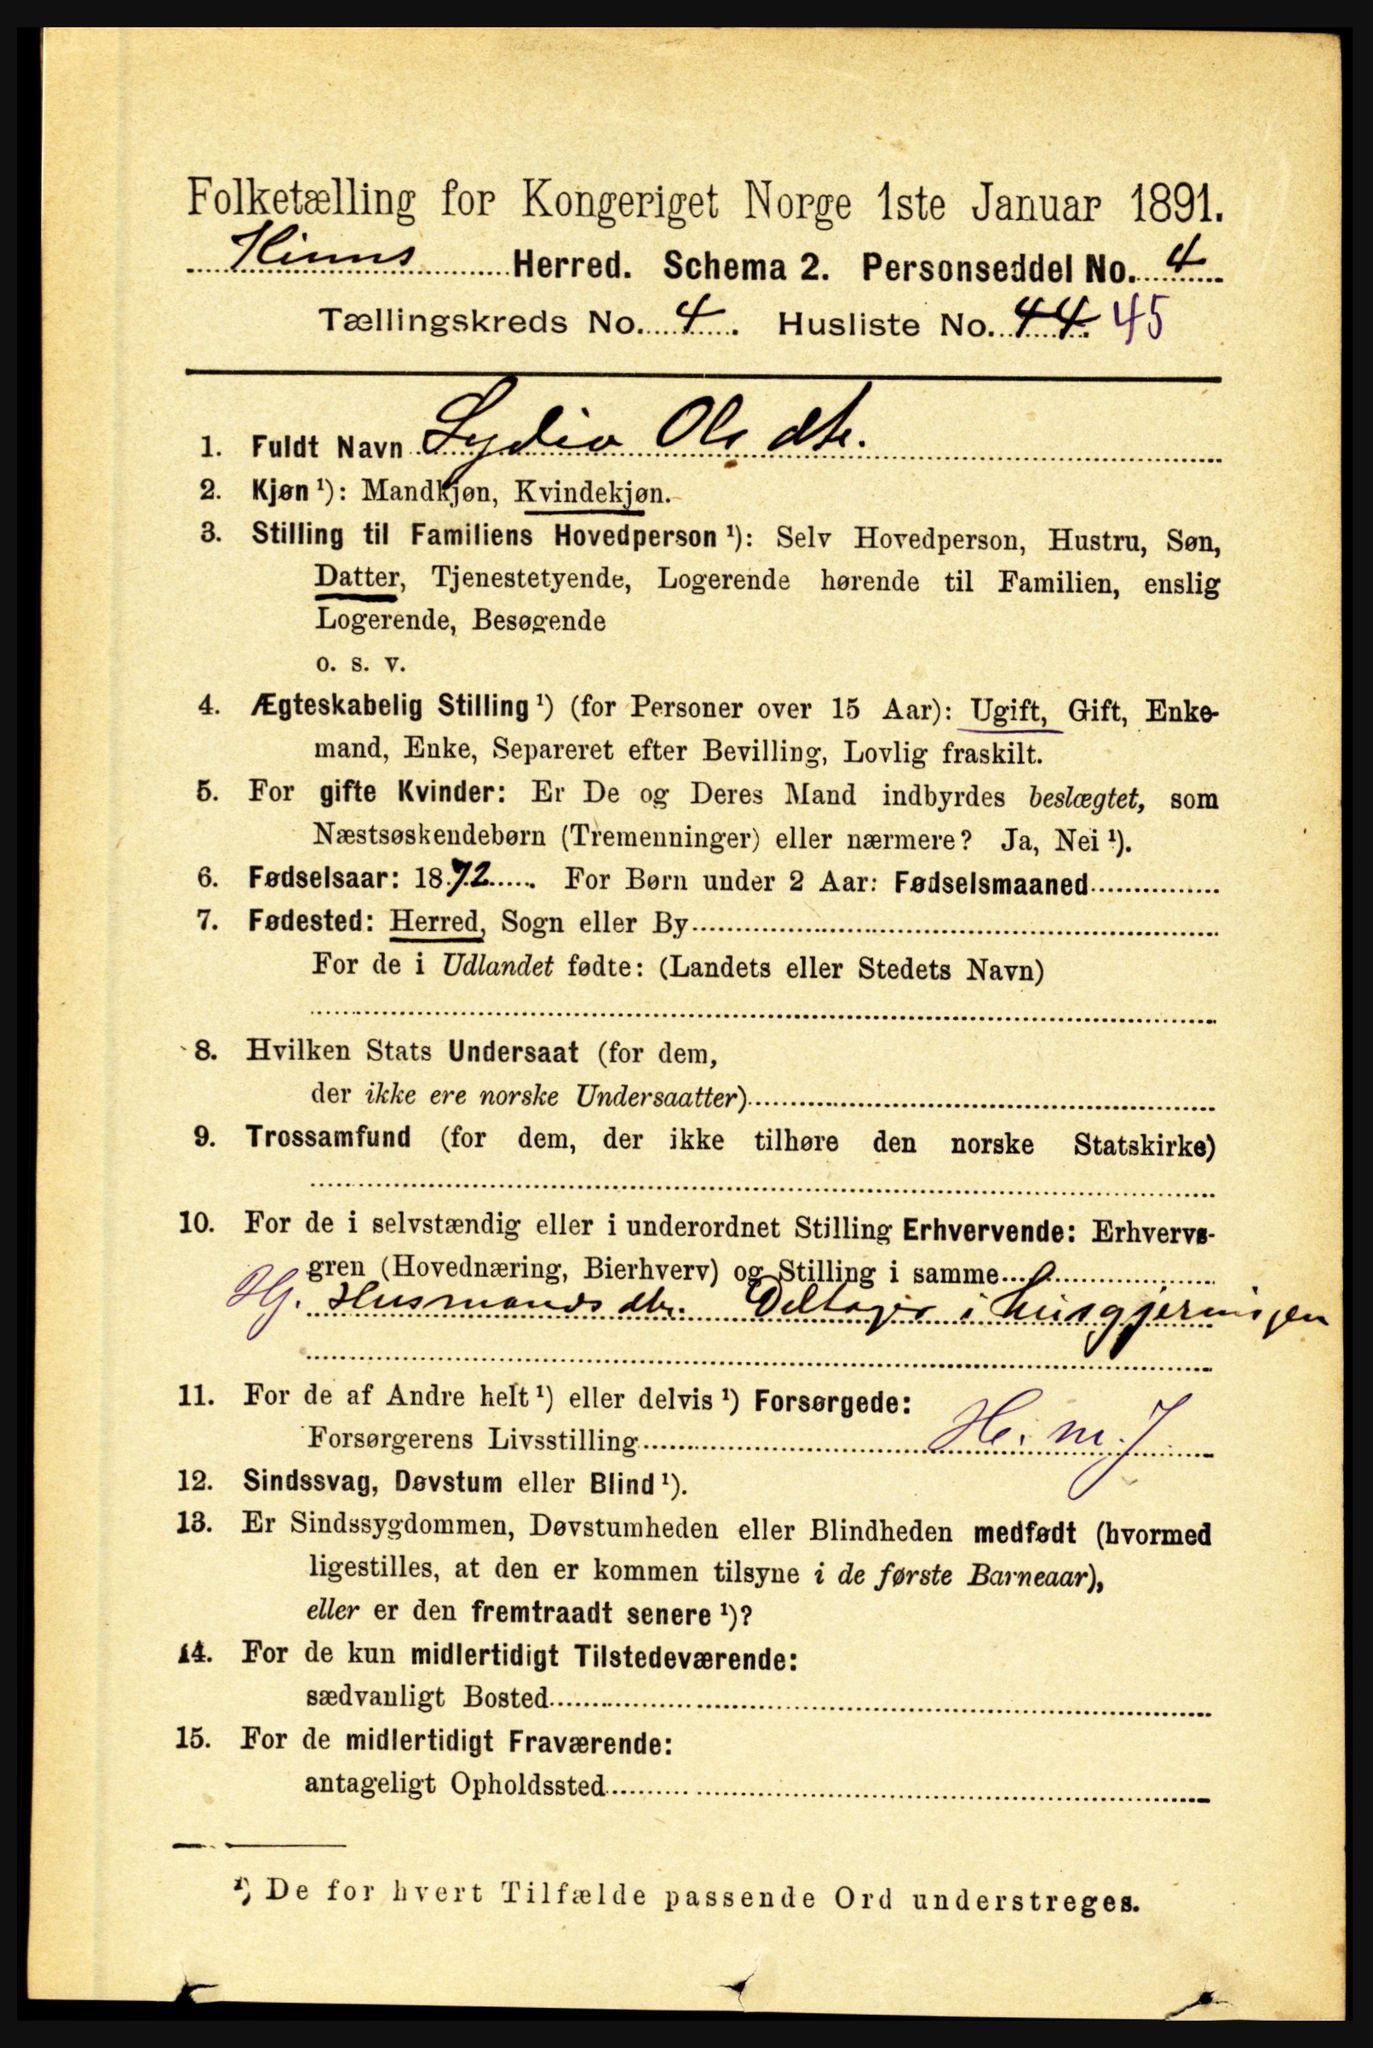 Folketælling for Kongeriget Norge 1ste Januar 1891.
Herred. Schema 2. Personseddel No. 4
Tællingskreds No. 4. Husliste No. 44. 45
1. Fuldt Navn Lydia Olsdtr.
2. Kjøn ¹): Mandkjøn, Kvindekjøn.
3. Stilling til Familiens Hovedperson ¹): Selv Hovedperson, Hustru, Søn,
Datter, Tjenestetyende, Logerende hørende til Familien, enslig
Logerende, Besøgende
o. s. v.
4. Ægteskabelig Stilling ¹) (for Personer over 15 Aar): Ugift, Gift, Enke-
mand, Enke, Separeret efter Bevilling, Lovlig fraskilt.
5. For gifte Kvinder: Er De og Deres Mand indbyrdes beslægtet, som
Næstsøskendebørn (Tremenninger) eller nærmere? Ja, Nei ¹).
6. Fødselsaar: 1872. For Børn under 2 Aar: Fødselsmaaned
7. Fødested: Herred, Sogn eller By
For de i Udlandet fødte: (Landets eller Stedets Navn)
8. Hvilken Stats Undersaat (for dem,
der ikke ere norske Undersaatter)
9. Trossamfund (for dem, der ikke tilhøre den norske Statskirke)
10. For de i selvstændig eller i underordnet Stilling Erhvervende: Erhvervs-
gren (Hovednæring, Bierhverv) og Stilling i samme
Hj. Husmandsdtr. Deltager i husgjerningen
11. For de af Andre helt ¹) eller delvis ¹) Forsørgede:
Forsørgerens Livsstilling H. m. J
12. Sindssvag, Døvstum eller Blind ¹).
13. Er Sindssygdommen, Døvstumheden eller Blindheden medfødt (hvormed
ligestilles, at den er kommen tilsyne i de første Barneaar),
eller er den fremtraadt senere ¹)?
14. For de kun midlertidigt Tilstedeværende:
sædvanligt Bosted
15. For de midlertidigt Fraværende:
antageligt Opholdssted
¹) De for hvert Tilfælde passende Ord understreges.